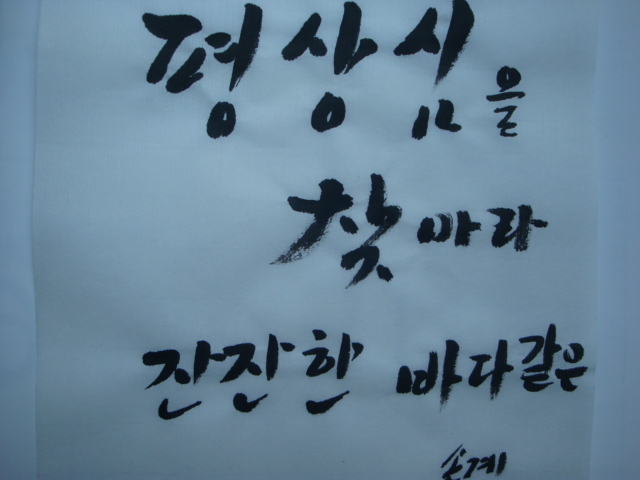 평상심을
찾아라
잔잔한 바다같은